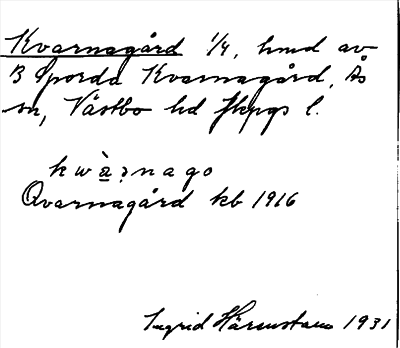 Kvarnagård 1/4, hmd av
B Sporda Kvarnagård, Ås
sn, Västbo hd Jkpgs l.
kwàṇago
Qvarnagård kb 1916
Ingrid 1931